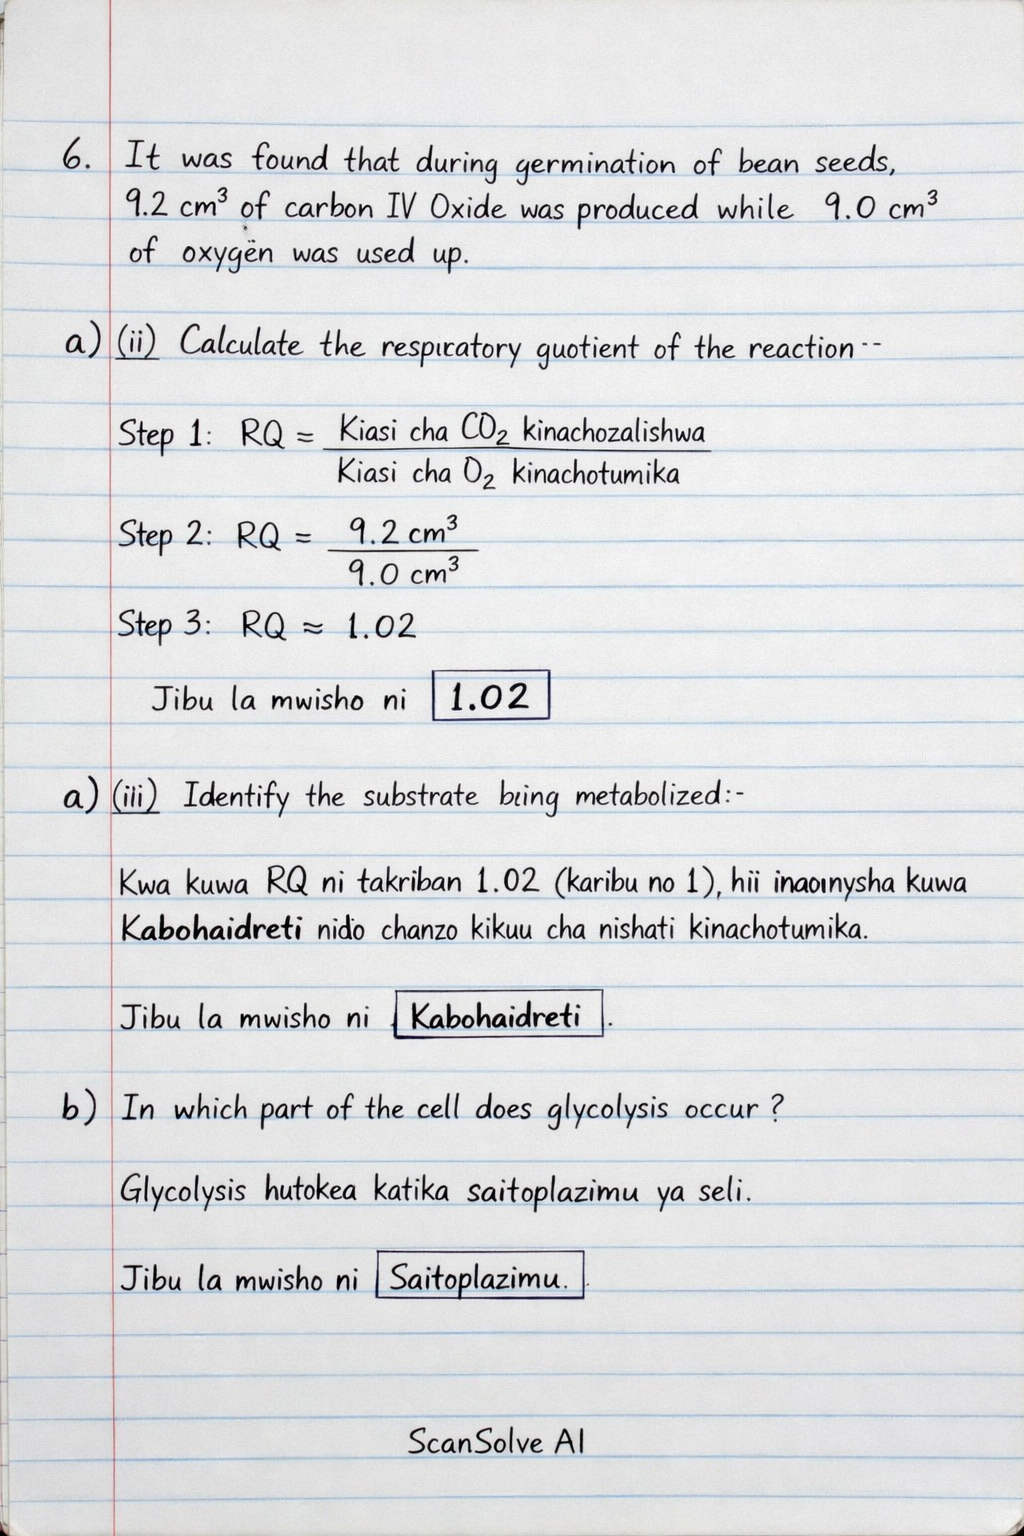 6. It was found that during germination of bean seeds,
9.2 cm³ of carbon IV Oxide was produced while 9.0 cm³
of oxygën was used up.
a) (ii) Calculate the respiratory guotient of the reaction --
Step 1: RQ = Kiasi cha CO₂ kinachozalishwa
Kiasi cha O₂ kinachotumika
Step 2: RQ = 9.2 cm³
9.0 cm³
Step 3: RQ ≈ 1.02
Jibu la mwisho ni 1.02
a) (iii) Identify the substrate being metabolized:-
Kwa kuwa RQ ni takriban 1.02 (karibu no 1), hii kuwa
Kabohaidreti nido chanzo kikuu cha nishati kinachotumika.
Jibu la mwisho ni Kabohaidreti.
b) In which part of the cell does glycolysis occur?
Glycolysis hutokea katika saitoplazimu ya seli.
Jibu la mwisho ni Saitoplazimu.
ScanSolve AI